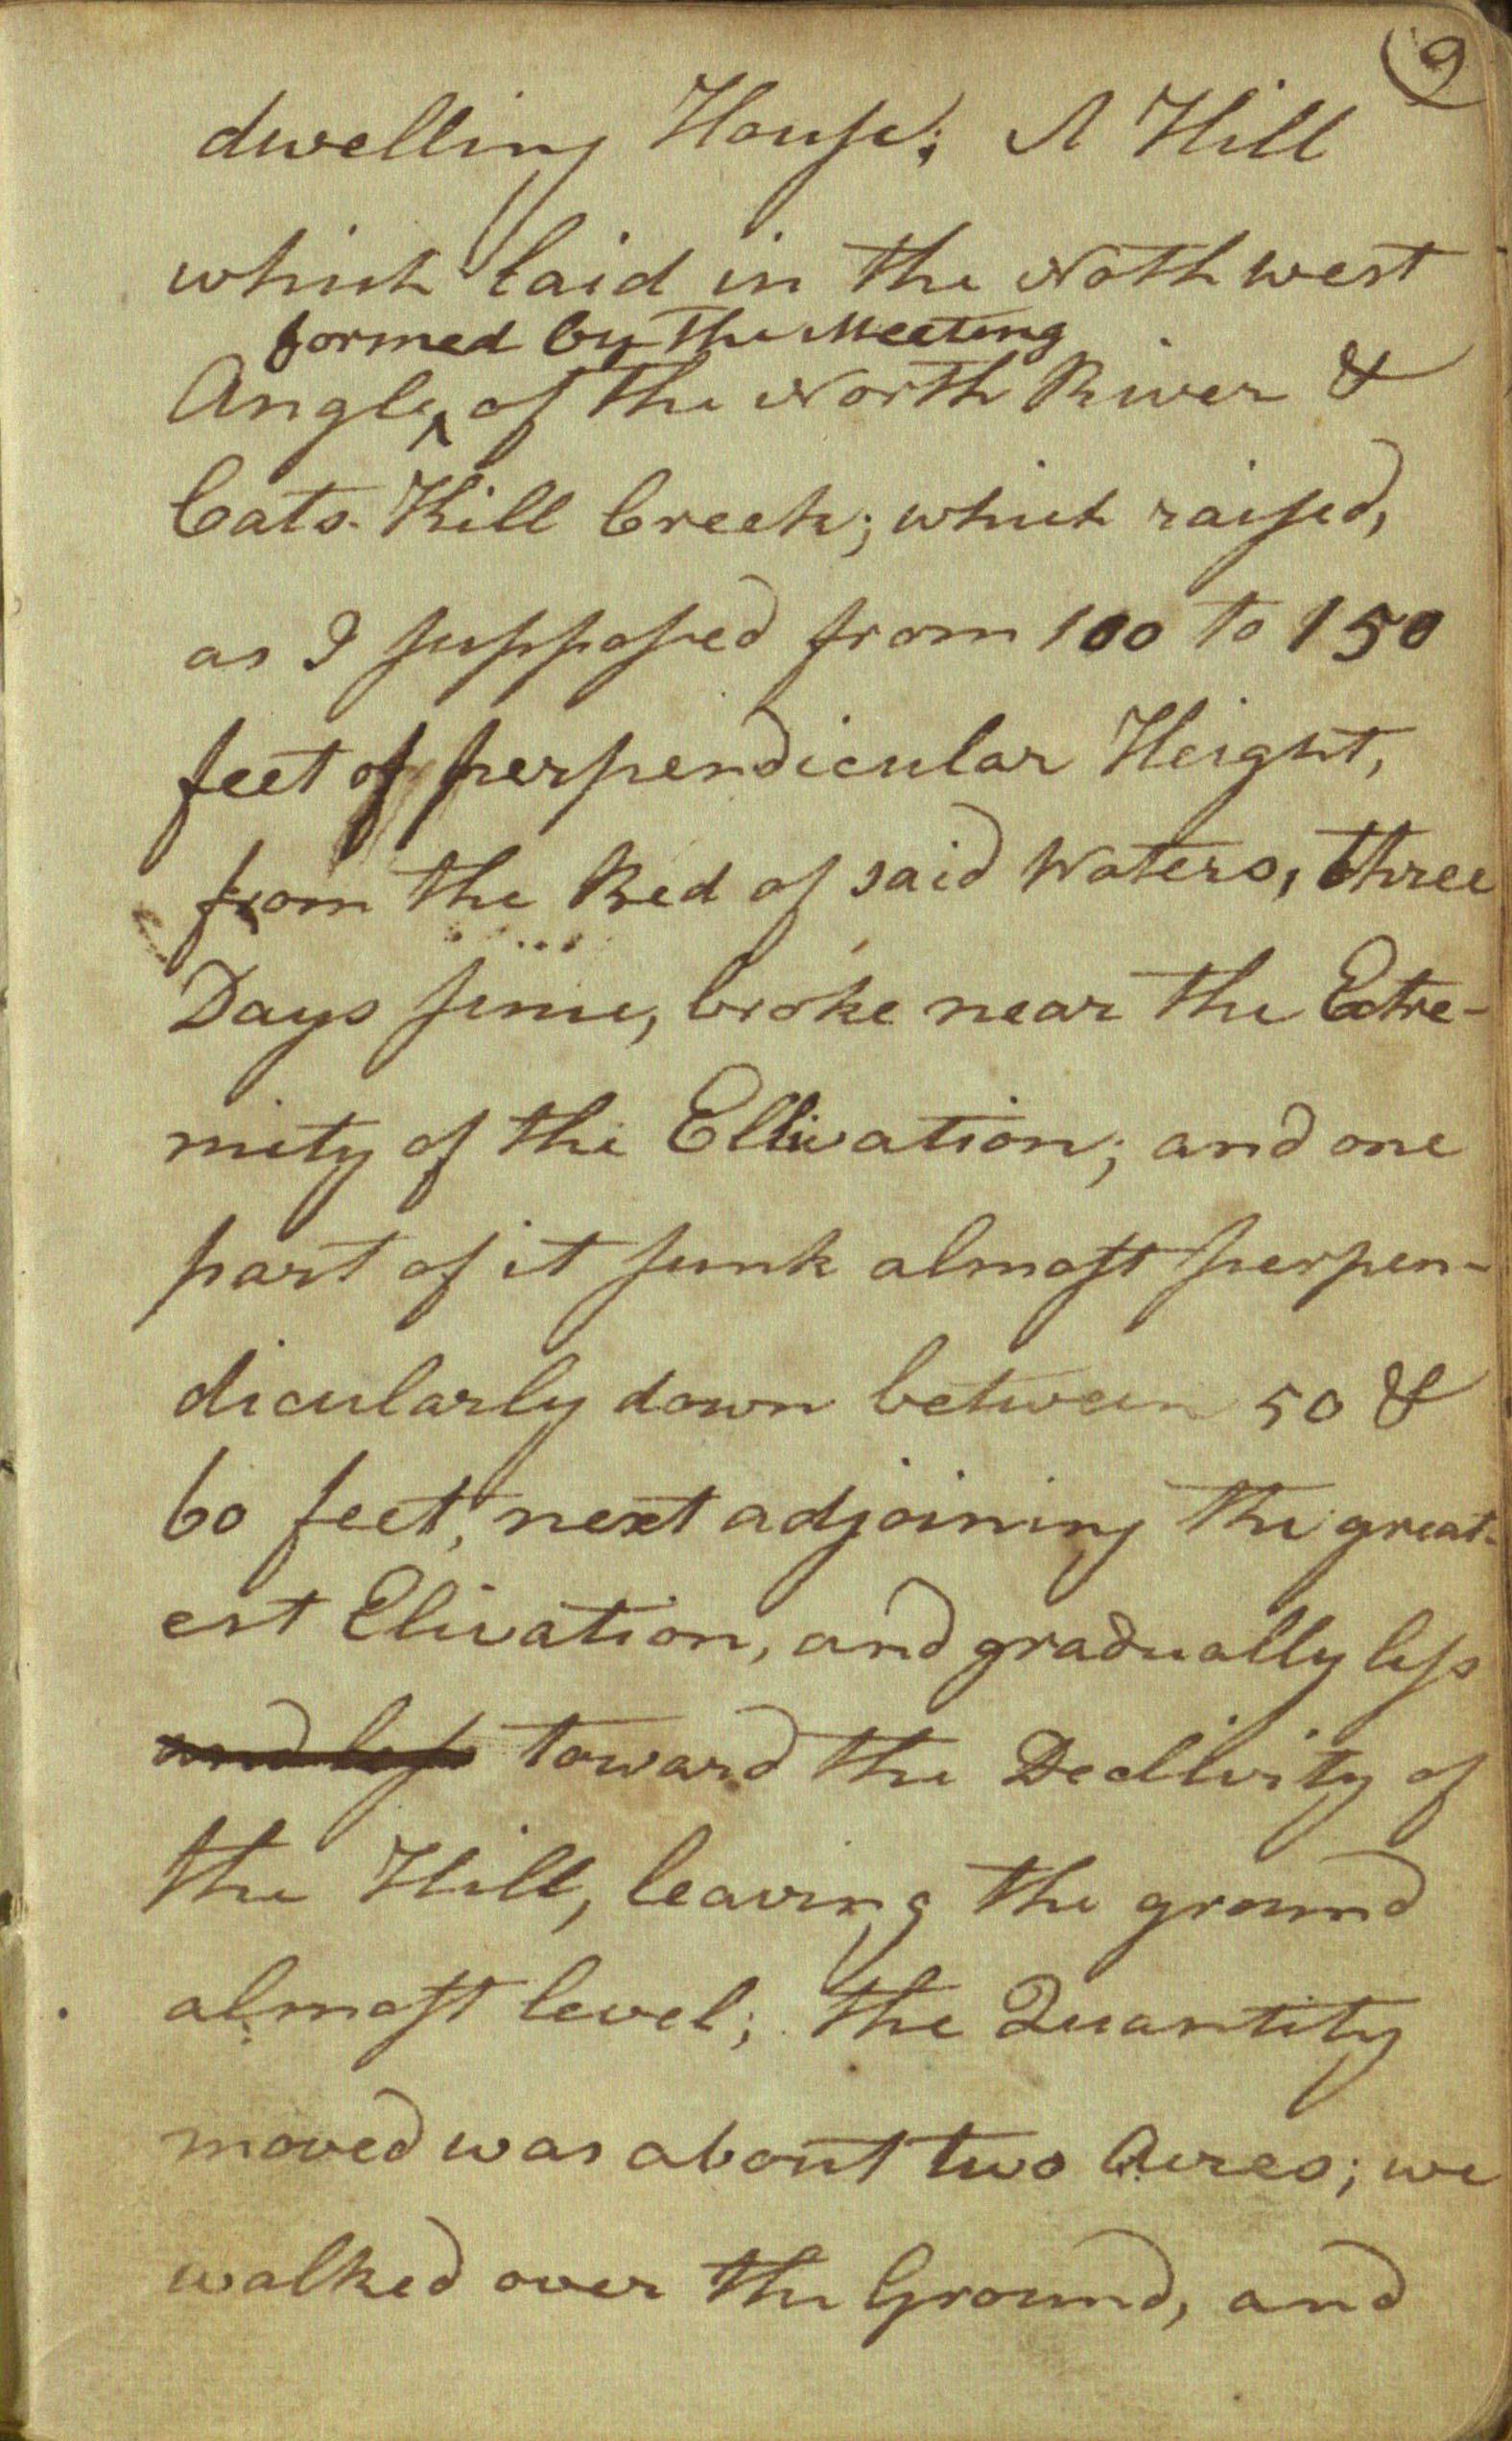 9
dwelling House; A Hill
which laid in the Nothwest
formed by the Meeting
Angle, of the North River &
Cats Kill Creek; which raised,
as I supposed from 100 to 150
feet of perpendicular Height,
from the Bed of said Waters, three
Days sinne, broke near the Extre-
mity of the Ellivation; and one
part of it sunk almost perpen-
dicularly down between 50 &
60 feet, next adjoining the great-
est Elivation, and gradually less
and less toward the Declivity of
the Hill, leaving the ground
almost level; the Quantity
moved was about two Acres; we
walked over the Ground, and